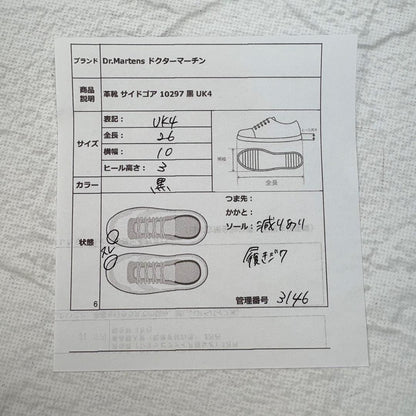 ブランド Dr.Martens ドクターマーチン
商品説明 革靴 サイドゴア 10297 黒 UK4
サイズ
表記： UK4
全長： 26
横幅： 10
ヒール高さ： 3
ヒール高さ
横幅
全長
カラー 黒
状態
スレ
つま先：
かかと：
ソール： 減りあり
履きジワ
6
管理番号 3146